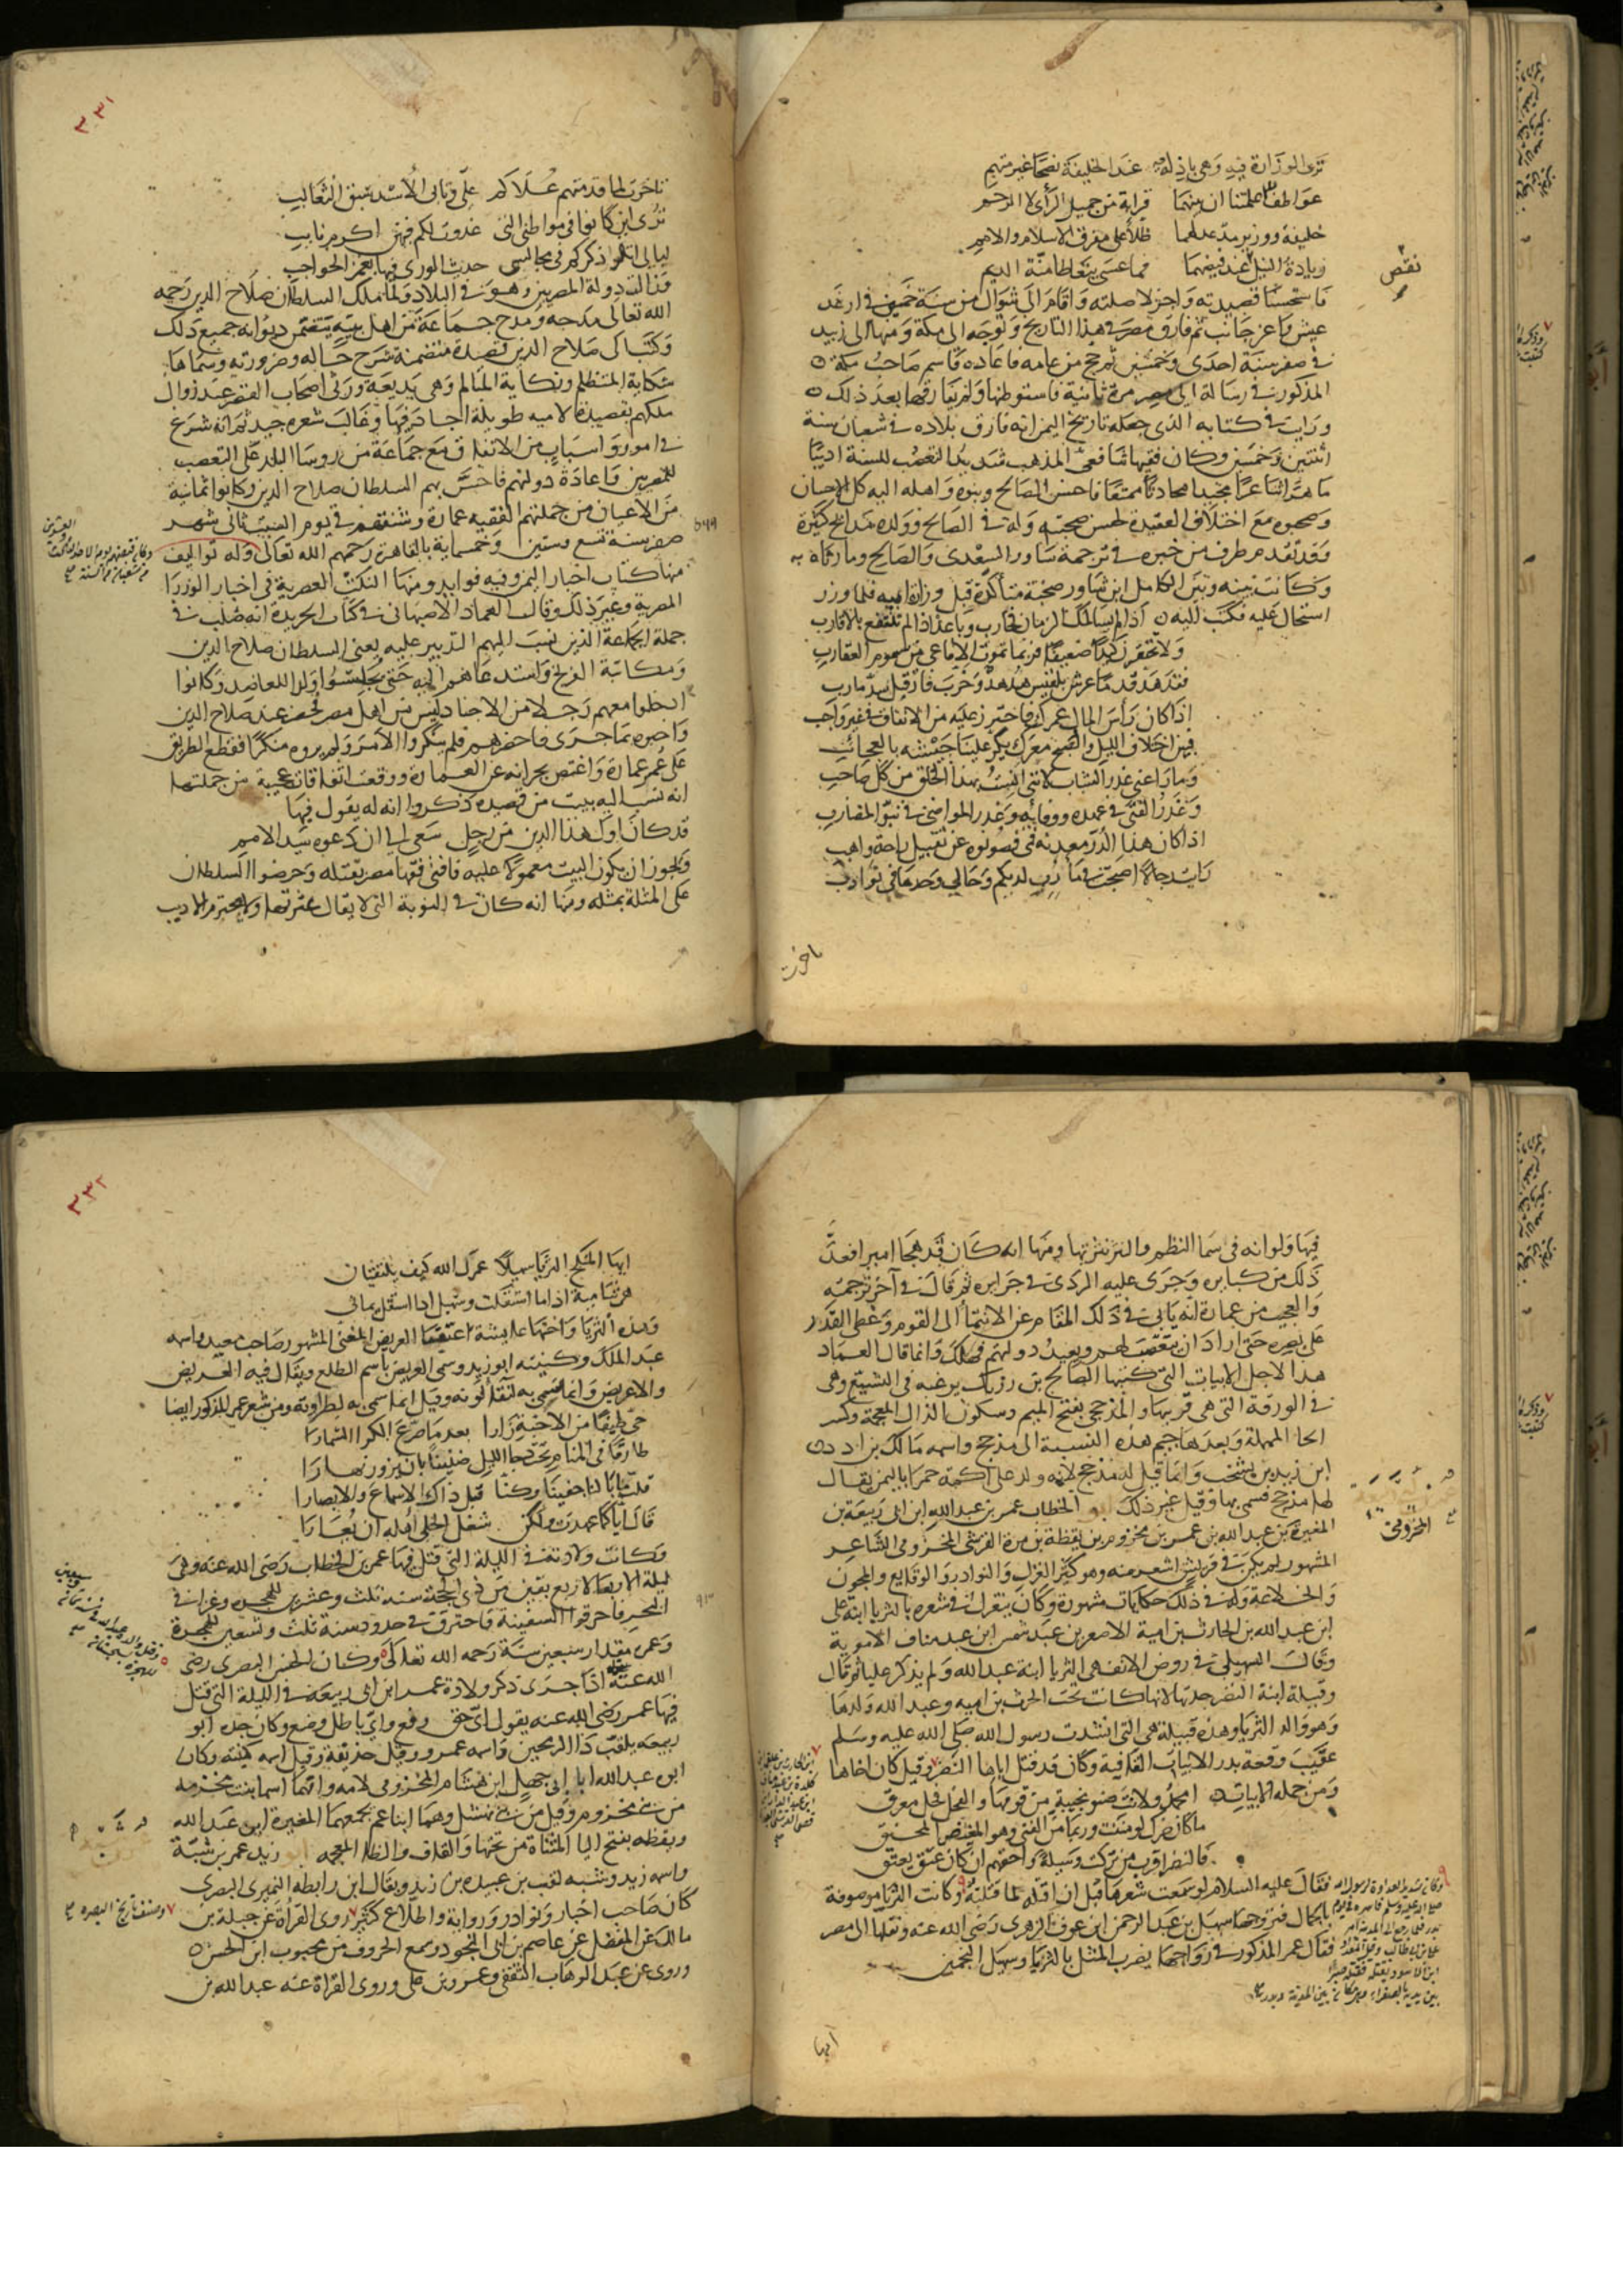 ترى الوزارة فيه وهي باذلة عند الخليفة نصحا غير متهم
عواطف اعلمتنا ان بينهما قرابة من جميل الرأى لا الرحم
خليفة ووزير مد عدلهما ظلا على مفرق الاسلام والامم
زيادة النيل نقص عند فيضهما فما عسى يتعاطا منة الديم
فاستحسنا قصيدته واجزلا صلته واقام الى شوال من سنة خمسين في ارغد
عيش واعز جانب ثم فارق مصر في هذا التاريخ وتوجه الى مكة ومنها الى زبيد
في صفر سنة احدى وخمسين ثم حج من عامه فاعاده قاسم صاحب مكة
المذكور في رسالة الى مصر مرة ثانية فاستوطنها ولم يفارقها بعد ذلك
ورايت في كتابه الذي جعله تاريخ اليمن انه فارق بلاده في شعبان سنة
اثنتين وخمسين وكان فقيها شافعي المذهب شديد التعصب للسنة اديبا
ماهرا شاعرا مجيدا محادثا ممتعا فاحسن الصالح وبنوه واهله اليه كل الاحسان
وصحبوه مع اختلاف العقيدة لحسن صحبته وله في الصالح وولده مدائح كثيرة
وقد تقدم طرف من خبره في ترجمة شاور السعدى والصالح وما رثاه به
وكانت بينه وبين الكامل ابن شاور صحبة متأكدة قبل وزارة ابيه فلما وزر
استحال عليه فكتب اليه اذا لم يسالمك الزمان فحارب وباعد اذا لم تنتفع بالاقارب
ولا تحتقر كيدا ضعيفا فربما تموت الافاعي من سموم العقارب
فقد هد قدما عرش بلقيس هدهد وخرب فار قبل سد مارب
اذا كان رأس المال عمرك فاحترز عليه من الانفاق في غير واجب
فبين اختلاف الليل والصبح معرك يكر علينا جيشه بالعجائب
وما راعني غدر الشباب لانني انست بهذا الخلق من كل صاحب
وغدر الفتى في عهده ووفائه وغدر المواضى في نبو المضارب
اذا كان هذا الدر معدنه فمي فصونوه عن تقبيل راحة واهب
رايت رجالا اصبحت في مآدب لديكم وحالي وحدها في نوادب
تاخرت
٣٣١
تاخرت لما قدمتهم علاكم علي وتابى الاسد سبق الثعالب
ترى اين كانوا في مواطني التي غدوت لكم فيهن اكرم نايب
ليالي اتلو ذكركم في مجالس حديث الورى فيها بغمز الحواجب
وزالت دولة المصريين وهو في البلاد ولما ملك السلطان صلاح الدين رحمه
الله تعالى مدحه ومدح جماعة من اهل بيته يتضمن ديوانه جميع ذلك
وكتب الى صلاح الدين قصيدة متضمنة شرح حاله وضرورته وسماها
شكاية المتظلم ونكاية المتالم وهي بديعة ورثى اصحاب القصر عند زوال
ملكهم بقصيدة لامية طويلة اجاد فيها وغالب شعره جيد ثم انه شرع
في امور واسباب من الاتفاق مع جماعة من روسا البلد على التعصب
للمصريين واعادة دولتهم فاحس بهم السلطان صلاح الدين وكانوا ثمانية
من الاعيان من جملتهم الفقيه عمارة وشنقهم في يوم السبت ثاني شهر
صفر سنة تسع وستين وخمسماية بالقاهرة رحمهم الله تعالى وله تواليف
منها كتاب اخبار اليمن وفيه فوايد ومنها النكت العصرية في اخبار الوزرا
المصرية وغير ذلك وقال العماد الاصبهاني في كتاب الخريدة انه صلب في
جملة الجماعة الذين نسب اليهم التدبير عليه يعني السلطان صلاح الدين
ومكاتبة الفرنج واستدعاهم اليه حتى يجلسوا ولدا للعاضد وكانوا
ادخلوا معهم رجلا من الاجناد ليس من اهل مصر فحضر عند صلاح الدين
واخبره بما جرى فاحضرهم فلم ينكروا الامر ولم يروه منكرا فقطع الطريق
على عمر عمارة واعتض بخرابه عن العمارة ووقعت اتفاقات عجيبة من جملتها
انه نسب اليه بيت من قصيدة ذكروا انه له يقول فيها
قد كان اول هذا الدين من رجل سعى الى ان دعوه سيد الامم
ويجوز ان يكون البيت معمولا عليه فافتى فقها مصر بقتله وحرضوا السلطان
على المثلة بمثله ومنها انه كان في النوبة التي لا يقال عثرتها ولا يحترم الاديب
فيها ولو انه في سما النظم والنثر نثرتها ومنها انه كان قد هجا اميرا فعد
ذلك من كبايره وجرى عليه الردى في جرايره ثم قال في آخر ترجمته
والعجيب من عمارة انه يابى في ذلك المقام عن الانتما الى القوم وغطى القدر
على بصره حتى اراد ان يتعصب لهم ويعيد دولتهم فهلك وانما قال العماد
هذا لاجل الابيات التي كتبها الصالح بن رزيك يرغبه في التشيع وهي
في الورقة التي هي قبل هذه والمذحجي بفتح الميم وسكون الذال المعجمة وكسر
الحا المهملة وبعدها جيم هذه النسبة الى مذحج واسمه مالك بن ادد
ابن زيد بن يشجب وانما قيل له مذحج لانه ولد على اكمة حمرا باليمن يقال
لها مذحج فسمى بها وقيل غير ذلك ابو الخطاب عمر بن عبد الله ابن ابي ربيعة بن
المغيرة بن عبد الله بن عمر بن مخزوم بن يقظة بن مرة القرشي المخزومي الشاعر
المشهور لم يكن في قريش اشعر منه وهو كثير الغزل والنوادر والوقايع والمجون
والخلاعة وله في ذلك حكايات مشهورة وكان يتغزل في شعره بالثريا ابنة على
ابن عبد الله بن الحارث بن امية الاصغر بن عبد شمس ابن عبد مناف الاموية
وقال السهيلي في روض الانف هي الثريا ابنة عبد الله ولم يذكر عليا ثم قال
وقتيلة ابنة النضر جدتها لانها كانت تحت الحرث بن اميه وعبد الله ولدها
وهو والد الثريا وهذه قتيلة هي التي انشدت رسول الله صلى الله عليه وسلم
عقيب وقعة بدر الابيات القافية وكان قد قتل اباها النضر وقيل كان اخاها
ومن جملة الابيات امحمد ولانت ضنو نجيبة من قومها والفحل فحل معرق
ما كان ضرك لو مننت وربما من الفتى وهو المغيض المحنق
فالنضر اقرب من تركت وسيلة واحقهم ان كان عتق يعتق
فقال عليه السلام لو سمعت شعرها قبل ان اقتله لما قتلته وكانت الثريا موصوفة
بالجمال فتزوجها سهيل بن عبد الرحمن ابن عوف الزهري رضى الله عنه ونقلها الى مصر
فقال عمر المذكور في زواجهما يضرب المثل بالثريا وسهيل النجمين
ايها
٣٣٢
ايها المنكح الثريا سهيلا عمرك الله كيف يلتقيان
هي شامية اذا ما استقلت وسهيل اذا استقل يماني
وهذه الثريا واختها عايشة اعتقتا الغريض المغني المشهور صاحب معبد واسمه
عبد الملك وكنيته ابو زيد وسمى الغريض باسم الطلع ويقال فيه الغريض
والاغريض وانما سمى به لنقا لونه وقيل انما سمى به لطراوته ومن شعر عمر المذكور ايضا
حى طيفا من الاحبة زارا بعد ما صرع الكرا السمارا
طارقا في المنام تحت دجا الليل ضنينا بان يزور نهارا
قلت ما بالنا جفينا وكنا قبل ذاك الاسماع والابصارا
قال انا كما عهدت ولكن شغل الحلى اهله ان يعارا
وكانت ولادته في الليلة التي قتل فيها عمر بن الخطاب رضى الله عنه وهي
ليلة الاربعا لاربع بقين من ذى الحجة سنة ثلث وعشرين للهجرة وغزا في
البحر فاحرقوا السفينة فاحترق في حدود سنة ثلث وتسعين للهجرة
وعمره مقدار سبعين سنة رحمه الله تعالى وكان الحسن البصرى رضى
الله عنه اذا جرى ذكر ولادة عمر ابن ابي ربيعة في الليلة التي قتل
فيها عمر رضى الله عنه يقول اى حق رفع واى باطل وضع وكان جده ابو
ربيعه يلقب ذا الرمحين واسمه عمرو وقيل حذيفة وقيل اسمه كنيته وكان
ابوه عبد الله اخا ابي جهل ابن هشام المخزومى لامه وامهما اسما بنت مخرمه
من بنى مخزوم وقيل من بنى نهشل وهما ابنا عم يجمعهما المغيرة ابن عبد الله
ويقظه بفتح اليا المثناة من تحتها والقاف والظا المعجمه ابو زيد عمر بن شبة
واسمه زيد وشبه لقب بن عبيده بن زيد ويقال ابن رابطه النميرى البصرى
كان صاحب اخبار ونوادر ورواية واطلاع كثير روى القرأة عن جبلة بن
مالك عن المفضل عن عاصم بن ابي النجود وسمع الحروف من محبوب ابن الحسن
وروى عن عبد الوهاب الثقفي وعمرو بن على وروى القراة عنه عبد الله بن
وصنف تاريخ البصره